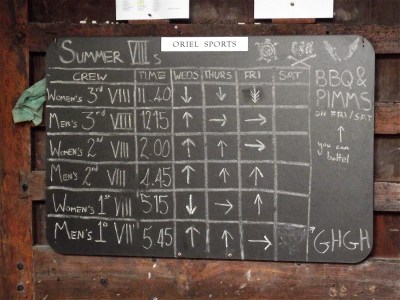 ORIEL SPORTS
SUMMER VIIIs
CREW TIME WEDS THURS FRI SAT
WOMEN'S 3rd VIII 11.40 ↓ ↓
MEN'S 3rd VIII 12.15 ↑ → →
WOMEN'S 2nd VIII 2.00 ↑ ↑ →
MEN'S 2nd VIII 4.45 ↑ ↑ ↑
WOMEN'S 1st VIII 5.15 ↓ → ↑
MEN'S 1st VIII 5.45 ↑ ↑ →
BBQ &
PIMMS
ON FRI/SAT
↑
you can
GHGH